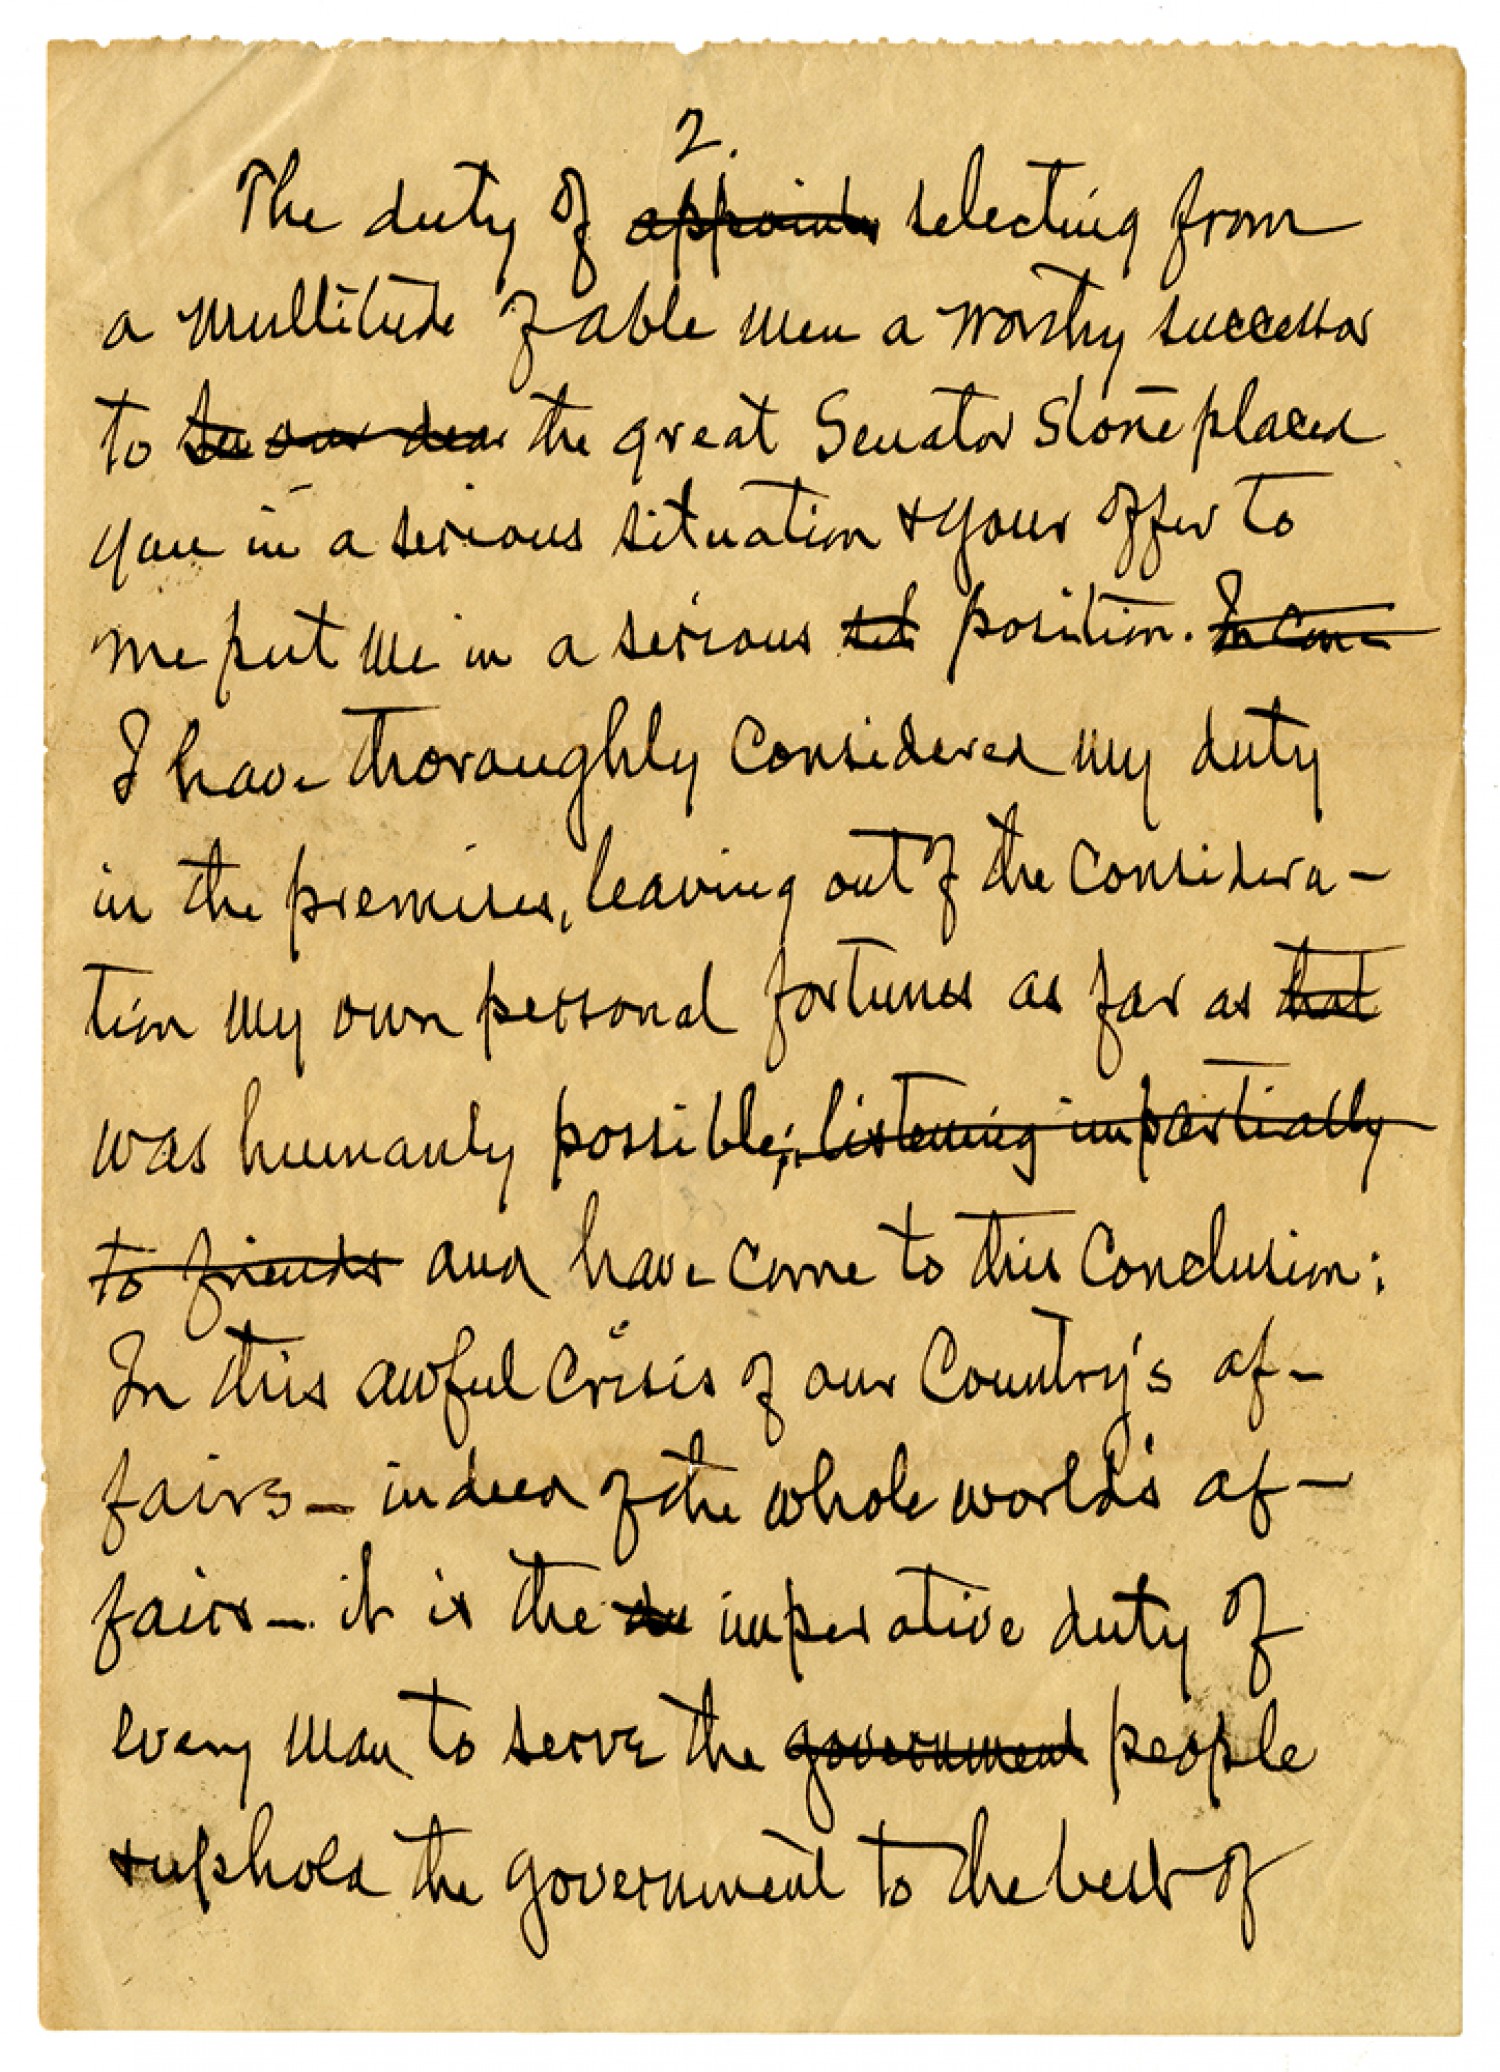 2.
The duty of appoint selecting from
a multitude of able men a worthy successor
to our dear the great Senator Stone placed
you in a serious situation & your offer to
me put me in a serious sit position. In con-
I have thoroughly considered my duty
in the premises, leaving out of the considera-
tion my own personal fortunes as far as that
was humanly possible; listening impartially
to friends and have come to this conclusion:
In this awful crisis of our Country's af-
fairs — indeed of the whole world's af-
fairs — it is the du imperative duty of
every man to serve the government people
& uphold the government to the best of